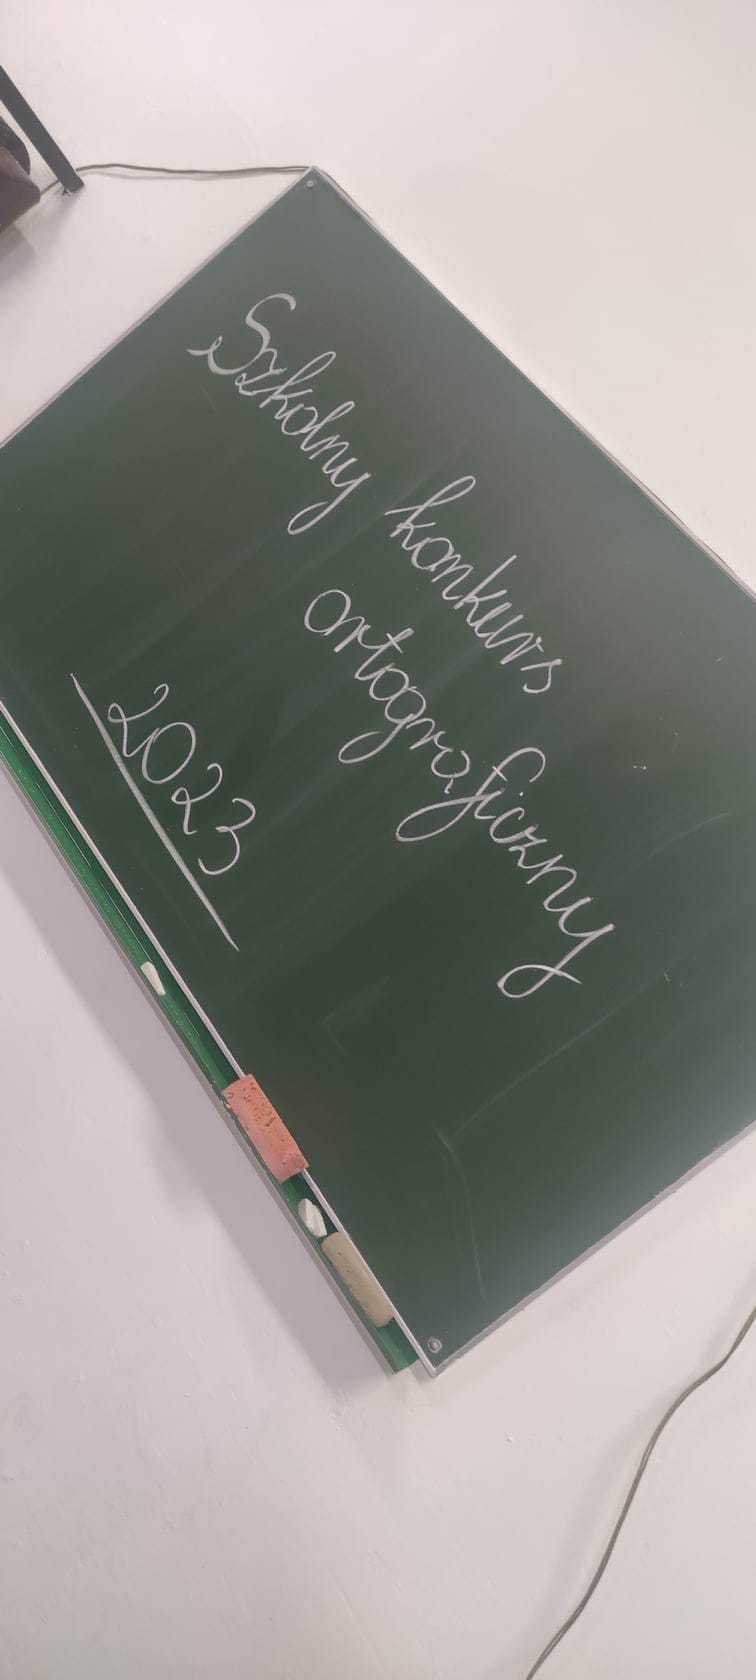 Szkolny konkurs
ortograficzny
2023